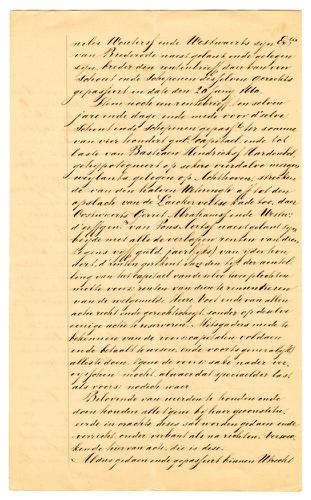 nelis Wouters ende Westwaerts sijn Ex.tie
van Brederode naest gelant ende gelegen
sijn, breder den rentenbrief daer van voor
Schout ende Schepenen desselven Gerechts
gepasseert in date den 20 Juny 1660.
Item noch een rentebrieff ten selven
jare ende dage ende mede voor d'selve
Schout ende schepenen gepasst ter somme
van vier hondert gul. capitael ende tot
laste van Bastiaen Hendricksz Hardenbol
gehypotequeert op sekere viertalve mergen
weylants, gelegen op Achthoven, strecken
de van den halven
opslach van de Laecker veltse kade toe, daer
Oostwaerts Gerrit Abrahams ende Westw.
d'erffgen. van Pons Aerts naest gelant sijn
beyde met alle de verlopen renten van dien
tegens vijf guld. jaerlijks van yder hon
dert, d'renten gerekent tot den tijt der aentel
ling van het capitael van de selve twee plechten
mette voors. renten van dien te renuntieren
van de welgemelde Heere Voet ende van allen
actie recht ende gerechticheyt, sonder op de selve
eenige actie te reserveren. Mitsgaders mede te
bekennen van de voors. capitalen voldaen
ende betaelt te wesen, ende voorts generalijck
alles te doen, 't gene de voors. sake nader ver
eysschen mocht, alwaer dat specialder last
als voors. nodich waer.
Belovende van weerden te houden ende
doen houden alle 't gene bij haer geconstitu
eerde in crachte deses sal worden gedaen ende
verricht, onder verbant als na rechten. Versoec
kende hier van acte, die is dese.
Aldus gedaen ende gepasseert binnen Utrecht